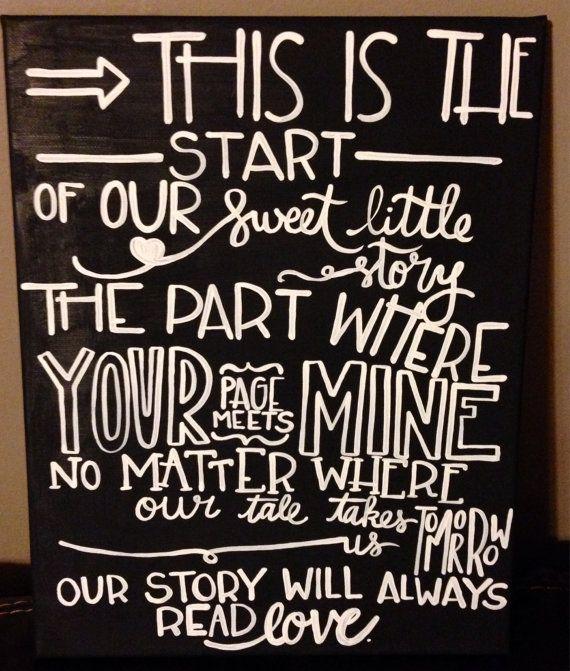 THIS IS THE
START
OF OUR sweet little
story
THE PART WHERE
YOUR PAGE MEETS MINE
NO MATTER WHERE
our tale takes
us TOMORROW
OUR STORY WILL ALWAYS
READ love.